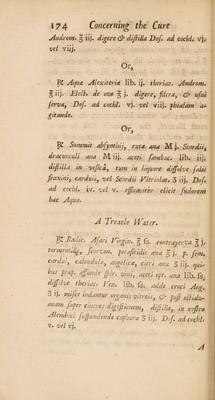 174 Concerning the Cure
Androm. ℥iij. digere & distilla Dos. ad cochl. vj.
vel viij.
Or,
℞ Aquæ Alexiteriæ lib. ij. theriac. Androm.
℥iij. Elect. de ovo ℥j. digere, filtra, & usui
serva, Dos. ad cochl. vj. vel viij. phialam a-
gitando.
Or,
℞ Summit absynthii, rutæ ana Mj. Scordii,
dracunculi ana Miij. aceti sambuc. lib. iij.
distilla in vesicâ, tum in liquore dissolve salis
fraxini, cardui, vel Scordii Vitriolat. ℥iij. Dos.
ad cochl. iv. vel v. efficaciter elicit sudorem
hæc Aqua.
A Treacle Water.
℞ Radic. Asari Virgin. ℥ss. contrayerva ℥j.
tormentill, scorzon. petasitidis ana ℥j. p. sem.
cardui, calendula, angelica, citri ana ℥iij. qui-
bus præp. affunde spir. vini, aceti opt. ana lib. ss,
dissolve theriac. Ven. lib. ss. adde croci Aug.
℥j. miser indantur organis vitreis, & post octidu-
anam super cineres digestionem, distilla, in vesica
Alembici suspendendo caphuræ ℥iij. Dos. ad cochl.
v. vel vj.
A